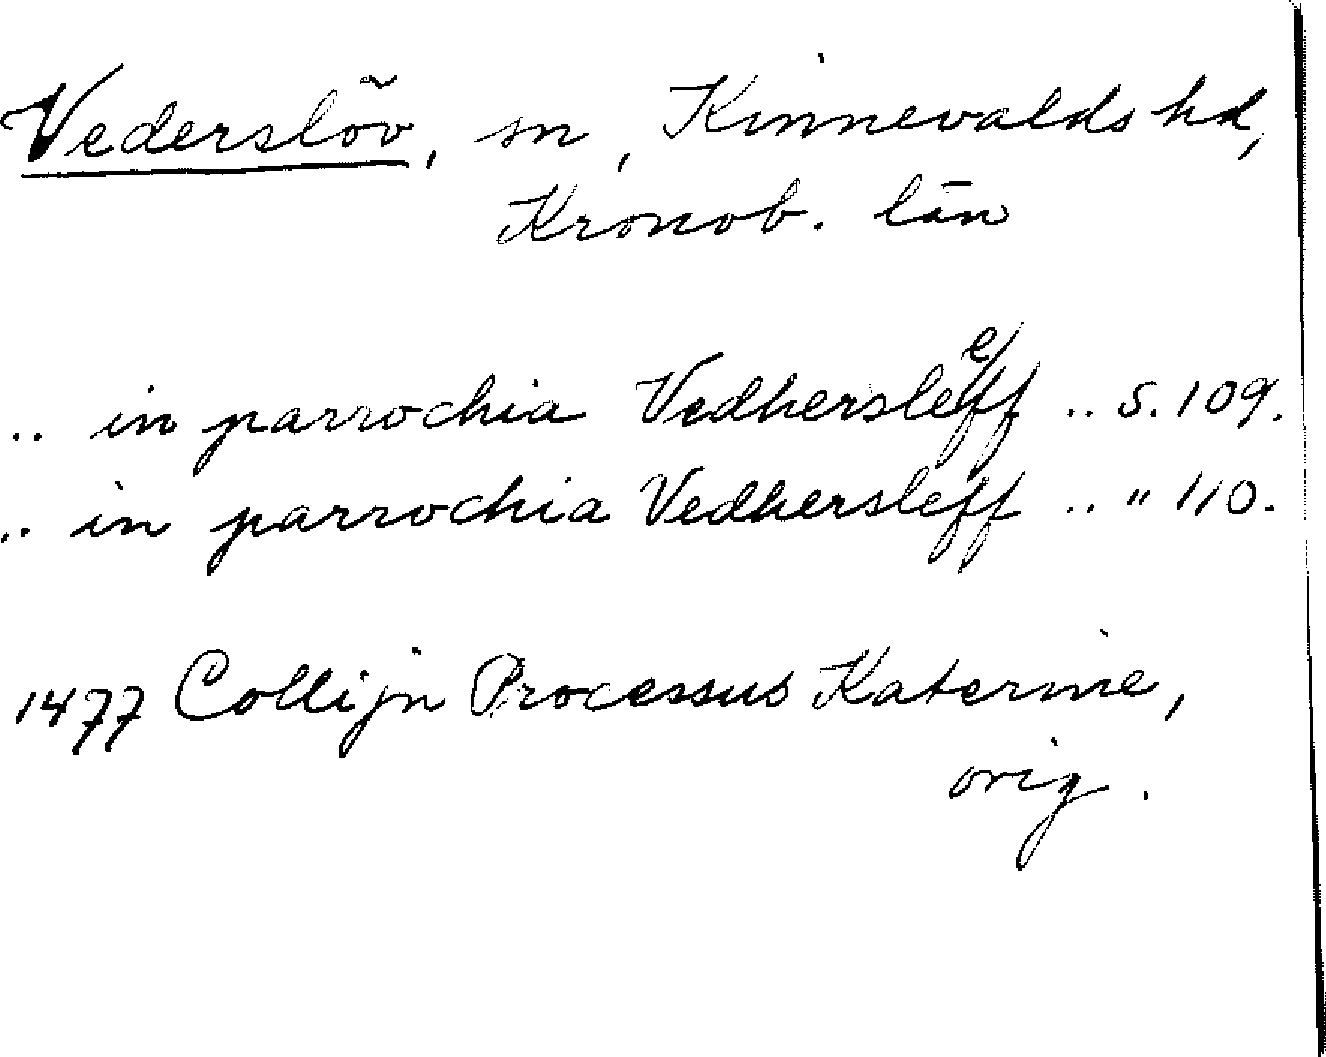 Vederslöv, sn, Kinnevalds hd,
Kronob. län
.. in parrochia Vedhersleeff .. s. 109.
.. in parrochia Vedhersleff .. " 110.
1477 Collijn Processus Katerine,
orig.